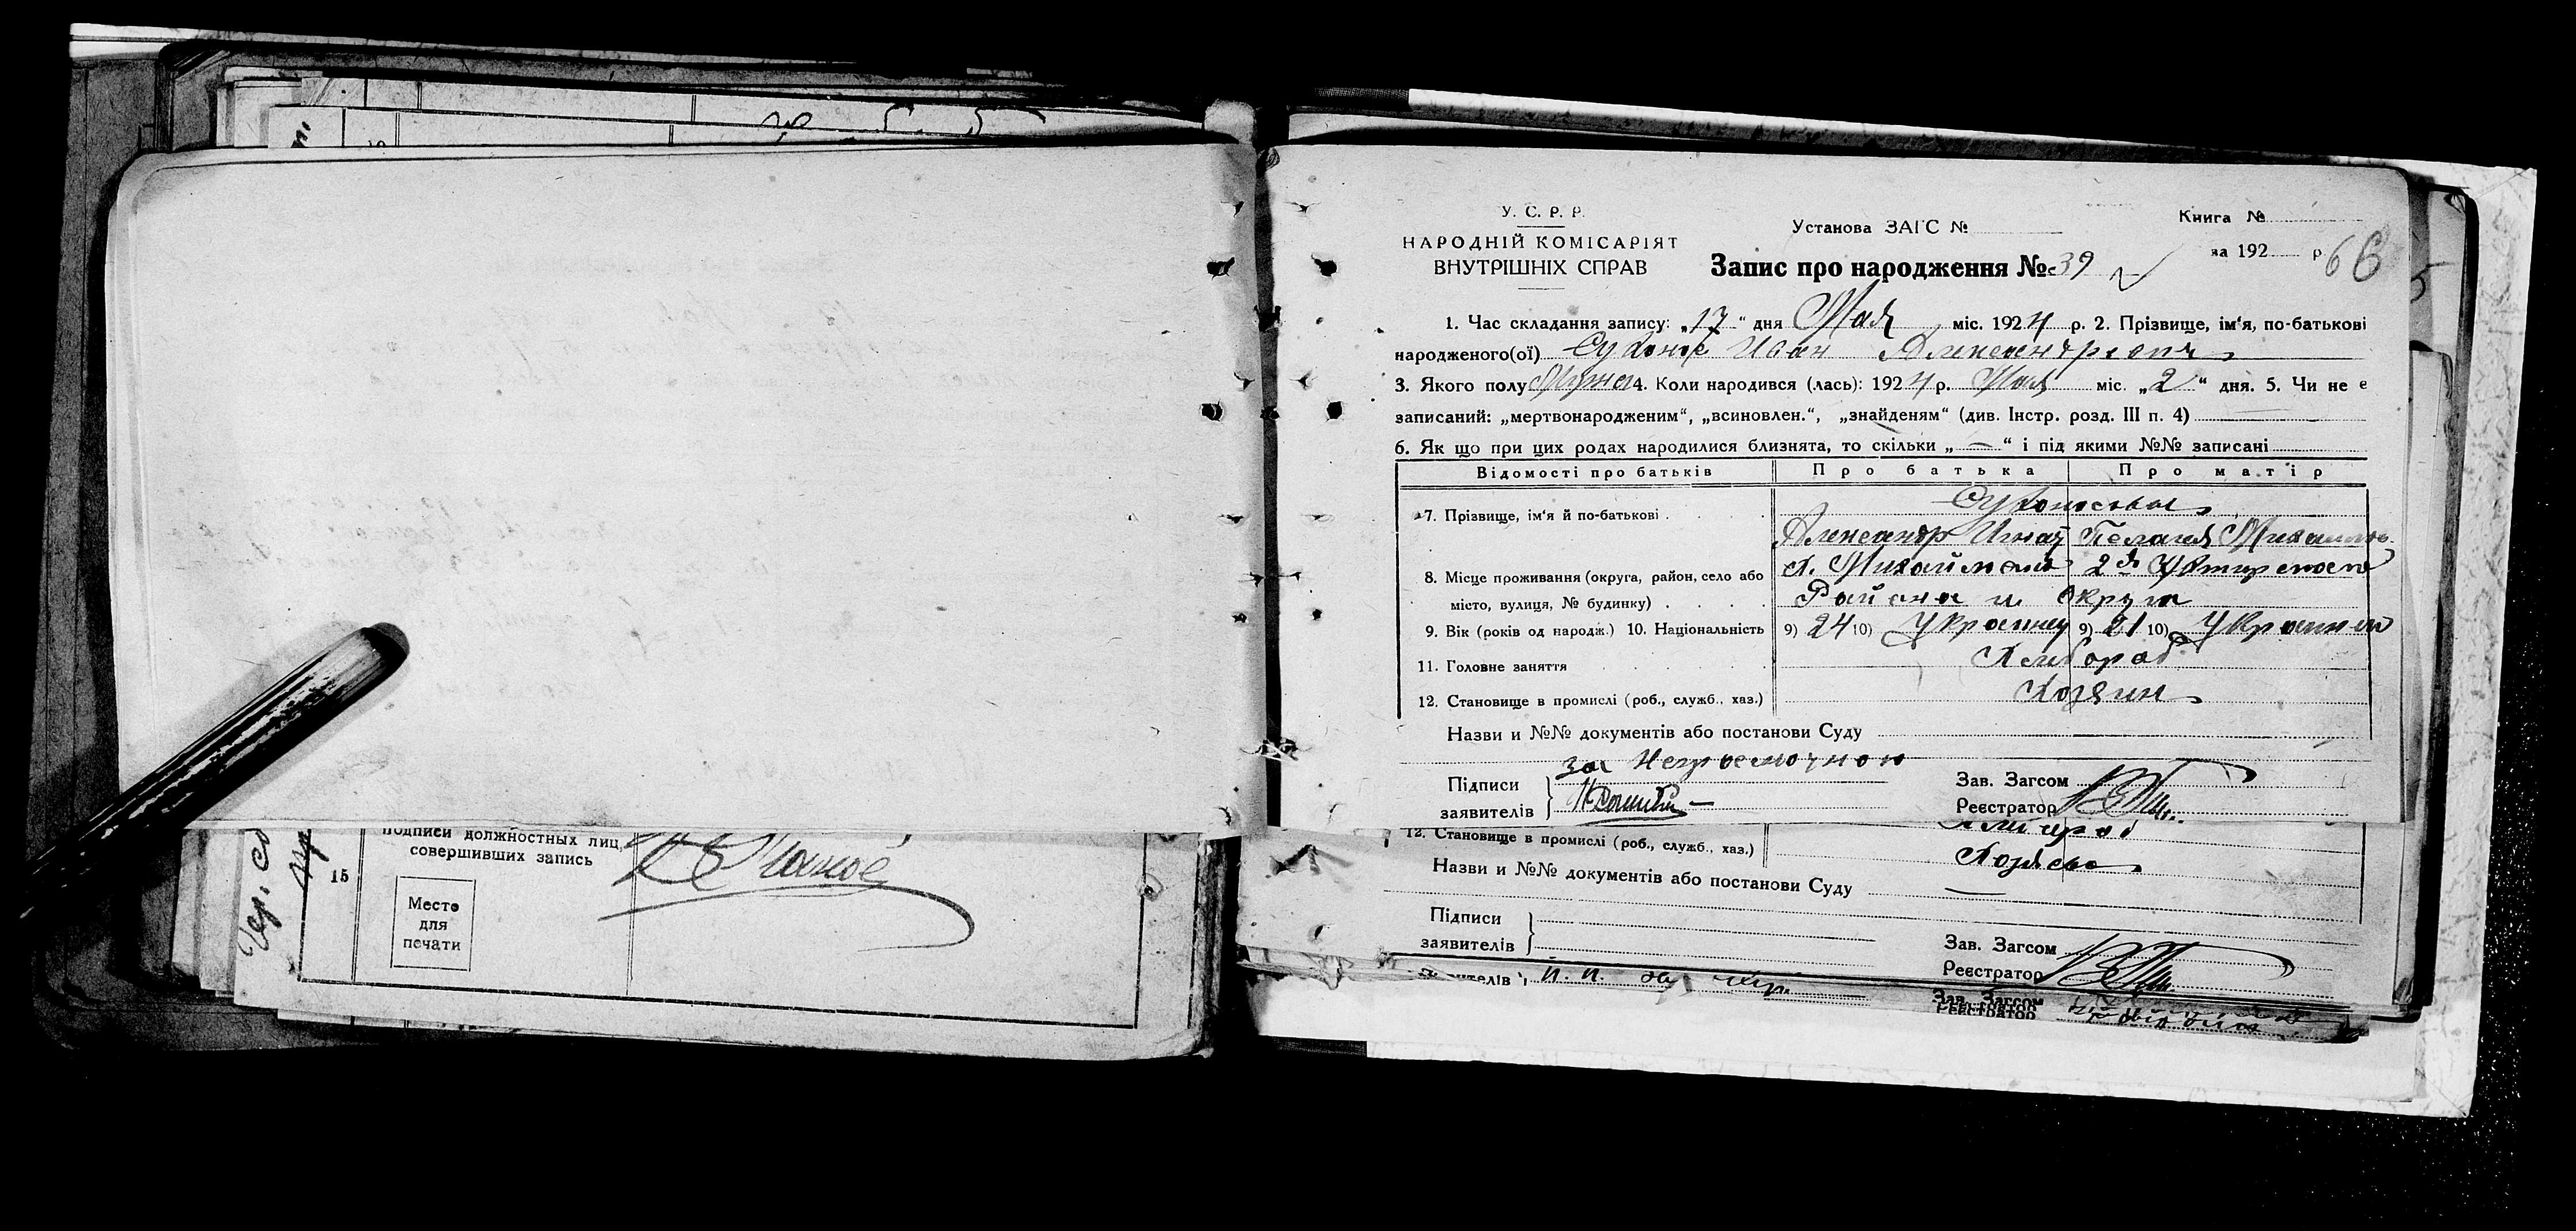 У. С. Р. Р.
НАРОДНІЙ КОМІСАРІЯТ
ВНУТРІШНІХ СПРАВ
Установа ЗАГС №
Книга №
за 192 р
66
Запис про народження № 39
1. Час складання запису: „17“ дня Мая міс. 1924 р. 2. Прізвище, ім‘я, по-батькові
народженого(ої) Сухонос Иван Александрович
3. Якого полу Мужс 4. Коли народився (лась): 1924 р. Мая міс. „2“ дня. 5. Чи не є
записаний: „мертвонародженим“, „всиновлен.“, „знайденям“ (див. Інстр. розд. III п. 4)
6. Як що при цих родах народилися близнята, то скільки „—“ і під якими №№ записані
Відомості про батьків Про батька Про матір
7. Прізвище, ім‘я й по-батькові
Сухоносовы
Александр Игнат Пелагея Михайлов
8. Місце проживання (округа, район, село або
місто, вулиця, № будинку)
х. Михайловка 2й
Района и Округа
9. Вік (років од народж.) 10. Національність 9) 24 10) Украинец 9) 21 10) Украинка
11. Головне заняття Хлебороб
12. Становище в промислі (роб., служб., хаз.) Хозяин
Назви и №№ документів або постанови Суду
за Неграмотною
Підписи
заявителів
Зав. Загсом
Реєстратор
подписи должностных лиц,
совершивших запись
15
Место
для
печати
12. Становище в промислі (роб., служб., хаз.)
Назви и №№ документів або постанови Суду
Підписи
заявителів
Зав. Загсом
Реєстратор
Зав. Загсом
Реєстратор